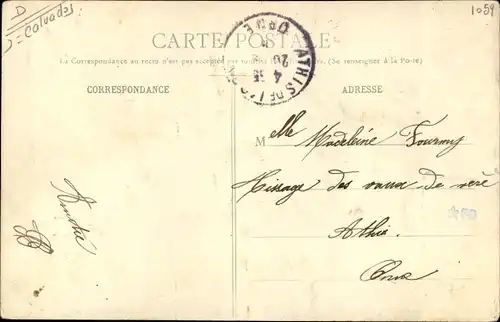 D
= Calvados
1059
CARTE POSTALE
La Correspondance au recto n'est pas acceptée par tous (Se renseigner à la Poste)
ATHIS DE L'ORNE
ORNE
4 26
CORRESPONDANCE
ADRESSE
Melle Madeleine Fourmy
Tissage des vaux de vère
Athis
Orne
André